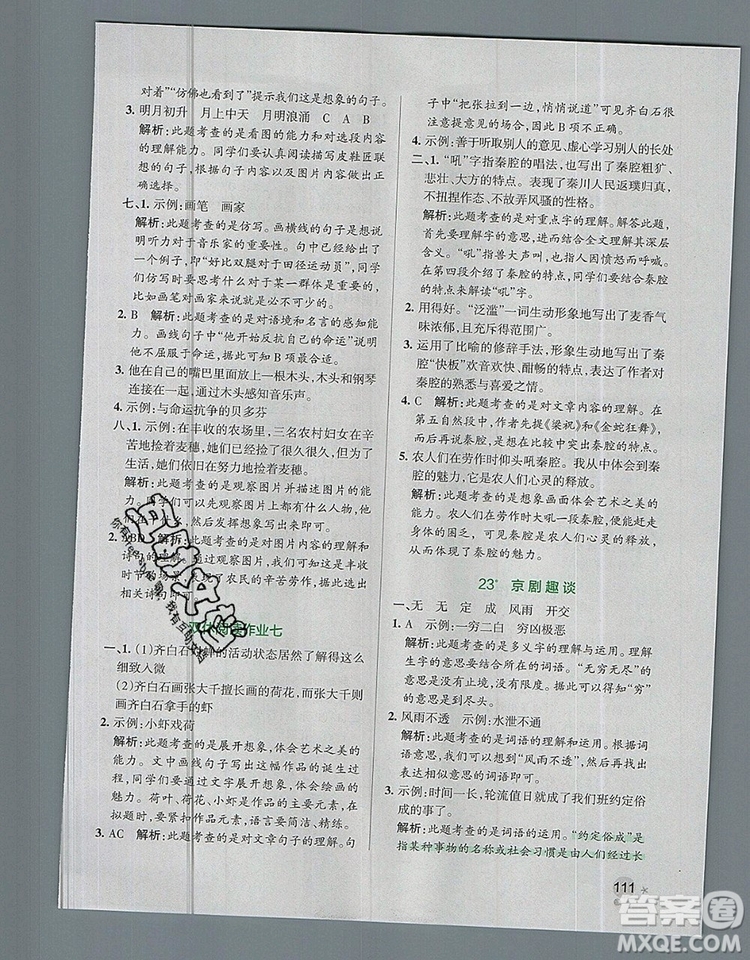 对着”“仿佛也看到了”提示我们是想象的句子。
3. 明月初升 月上中天 月明浪涌 C A B
解析:此题考查的是看图的能力和对选段内容
的理解能力。同学们要认真阅读描写皮鞋匠联
想的句子以及图片的内容,然后根据要求做出
选择。
七、1. 示例:画笔 画家
解析:此题考查的是仿写。画横线的句子是说
明听力对于音乐家的重要性。句中先给出了
一个例子,即“好比双腿对于田径运动员”,同学
们仿写时要思考什么对于某一群体是重要的,
比如画笔对画家来说就是很重要的。
2. B 解析:此题考查的是对语境和名言的感知能
力。画线句子中“他开始反抗自己的命运”是说
他要改变命运,由此可知B项最合适。
3. 他在自己的嘴巴里面放上一根木头,木头和钢琴
连接在一起,通过木头感知音乐声。
4. 示例:与命运抗争的贝多芬
八、1. 示例:在丰收的农场里,三名农村妇女在辛
苦地捡着麦穗,她们已经捡了很久很久,但仍
不停歇地努力地捡着麦穗。
解析:此题考查的是观察图片和语言表达的
能力。可以先观察图片上都有什么人物,他
们在干什么,
2. BD 解析:此题考查的是对图片内容的理解和
诗句的
时节的场景,体现了农民的辛苦劳作,据此选出
相关诗句即可。
作业七
一、1. (1)齐白石
的活动状态居然了解得这么
细致入微
(2)齐白石画张大千擅长画的荷花,而张大千则
画齐白石拿手的虾
2. 示例:小虾戏荷
解析:此题考查的是展开想象,体会艺术之美的
能力。文中画线句子写出了这幅作品的诞生过
程,同学们要通过文字展开想象,体会作品的艺
术之美。荷叶、荷花、小虾是作品的主要元素,在
拟题时,要紧扣作品的主要元素,简洁、精练。
3. AC 解析:此题考查的是对文章句子的理解。句
子中“把张大千拉到一边,悄悄说道”可见齐白石很
注意提意见的场合,因此B项不正确。
4. 示例:善于听取别人的意见、虚心学习别人的长处
二、1. “吼”字指秦腔的唱法,也写出了秦腔粗犷、
悲壮、大方的特点。表现了秦川人民返璞归真,
不扭捏作态、不故弄风骚的性格。
解析:此题考查的是对重点字的理解。解答此题,
首先要理解字的意思,然后结合全文理解其深层
含义。“吼”指兽大声叫,也指人因愤怒而呼喊。
在第四段介绍了秦腔的特点,我们要结合秦腔
的特点来理解“吼”字。
2. 用得好。“泛滥”一词生动形象地写出了麦香气
味浓郁,且充斥的范围广。
3. 运用了比喻的修辞手法,形象生动地写出了秦
腔“快板”欢音欢快、舒畅的特点,表达了对
秦腔的熟悉与喜爱之情。
4. C 解析:此题考查的是对文章内容的理解。在
第五自然段中,作者提及《梁祝》和《金蛇狂舞》,
是想与秦腔做比较,突出秦腔的特点。
5. 农人们在劳作时仰头吼秦腔。我从中体会到秦
腔的魅力,它是农人们心灵的释放。
解析:此题考查的是想象画面体会情感的能
力。从句子中,农人们在劳作时大吼一段秦腔,便能走出
身体的困乏,可见秦腔是农人们心灵的释放,这
种释放体现了秦腔的魅力。
23* 京剧趣谈
一、无 无 定 成 风雨 开交
1. 示例:一穷二白 穷凶极恶
解析:此题考查的是多义字的理解能力。理解
生字的意思,要结合所在的词语。“无穷无尽”的
意思是没有止境,没有限度。由此可知“穷”的意
思是尽头。
2. 风雨不透 示例:水泄不通
解析:此题考查的是词语的理解和运用。根据
词语的意思,我们可知是“风雨不透”。同学们
再写一个意思相近的词语即可。
3. 示例:时间一长,轮流值日就成了我们班约定俗
成的事了。
解析:此题考查的是词语的运用。“约定俗成”是
指某种事物的名称或社会习惯是由人们经过长
111
答案圈
MXQE.COM